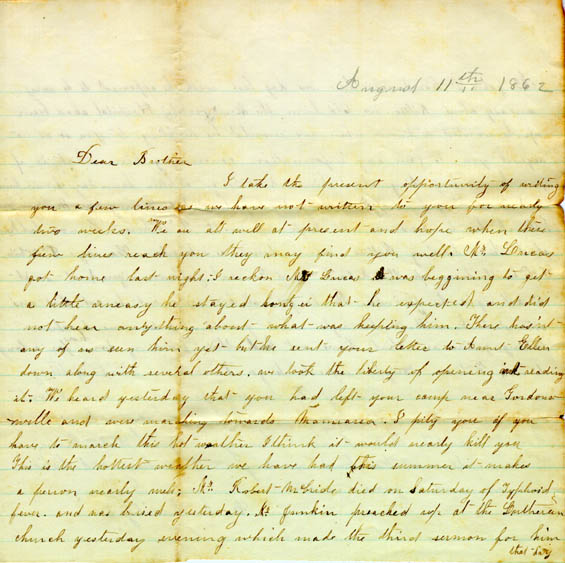 August 11th 1862
Dear Brother
I take the present opportunity of writing
you a few lines as we have not writen to you for nearly
two weeks. We are all well at present and hope when these
few lines reach you they may find you well. Mr. Lucas
got home last night; I reckon Mrs Lucas was beggining to get
a little uneasy he stayed longer that he expected and did
not hear anything about what was keepting him. There hasnt
any of us seen him yet but he sent your letter to Aunt Ellen
down along with several others. we took the liberty of opening and reading
it. We heard yesterday that you had left your camp near
ville and were marching towards Manassa. I pity you if you
have to march this hot weather I think it would nearly kill you
This is the hottest weather we have had this summer it makes
a person nearly melt; Mr. Robert McBride died on Saturday of Typhoid
fever. and was buried yesterday. Mr Junkin preached up at the Lutheran
church yesterday evening which made the third sermon for him
that day